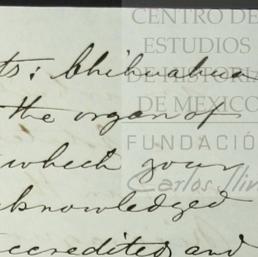 CENTRO DE
ESTUDIOS
DE HISTORIA
DE MEXICO
FUNDACIÓ
Carlos Sli
ts; Chihuahua
the organ of
which your
cknowledged
ccredited and